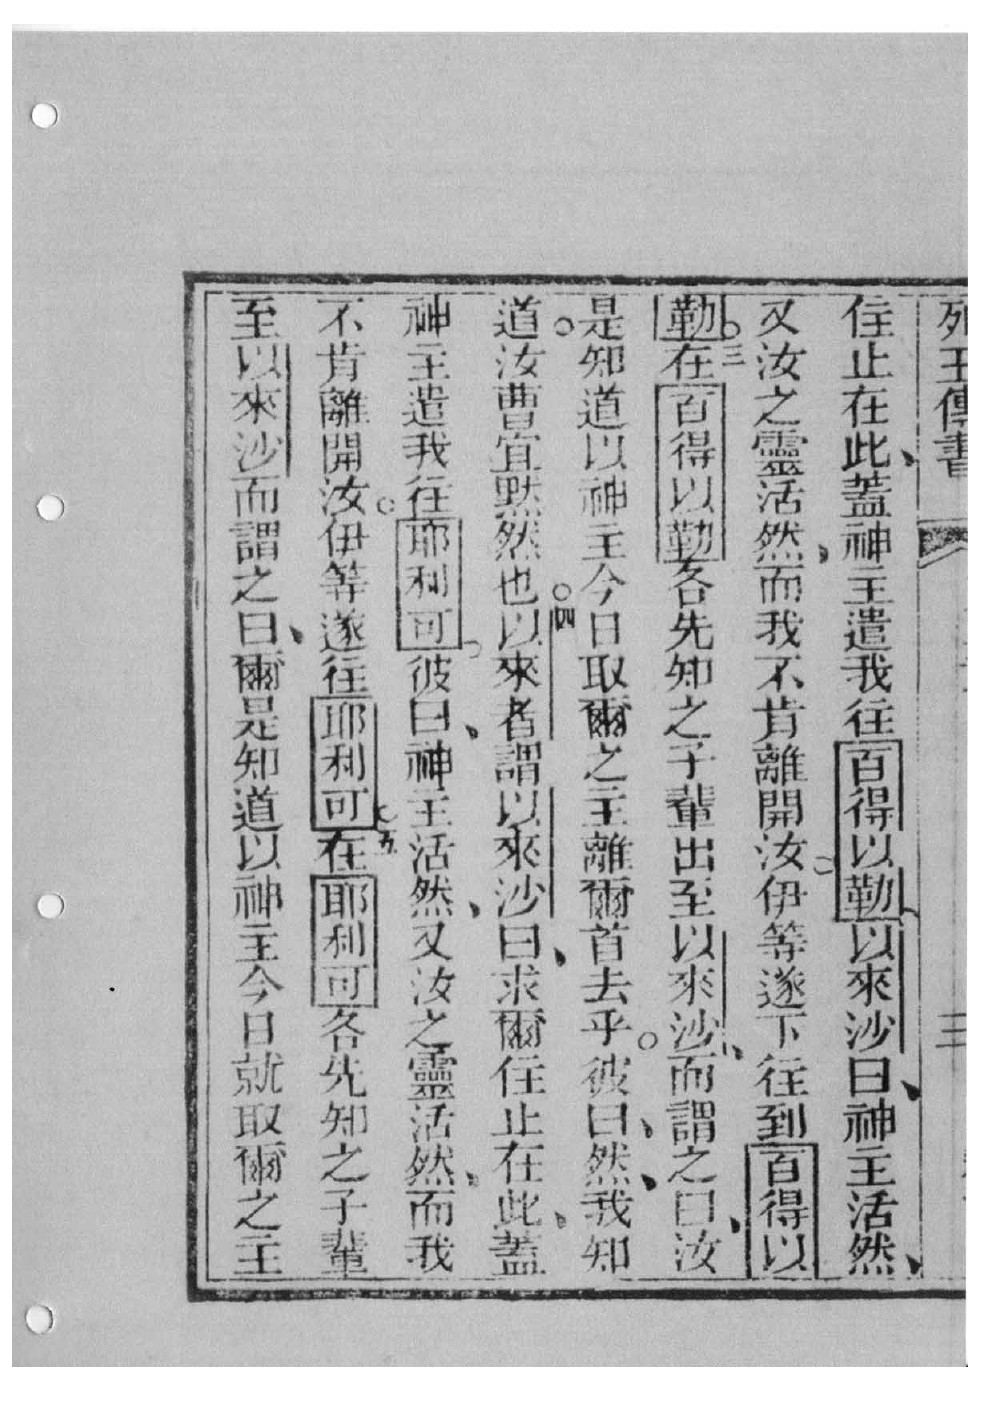 列王傳書 三
住止在此、蓋神主遣我往百得以勒以來沙曰、神主活然、
又汝之靈活然、而我不肯離開汝○伊等遂下往到百得以
勒○三在百得以勒各先知之子輩出至以來沙、而謂之曰、汝
是知道以神主今日取爾之主離爾首去乎○彼曰、然、我知
道○汝曹宜默然也○四以來者謂以來沙曰、求爾住止在此、蓋
神主遣我往耶利可○彼曰、神主活然、又汝之靈活然、而我
不肯離開汝○伊等遂往耶利可○五在耶利可各先知之子輩
至以來沙而謂之曰、爾是知道以神主今日就取爾之主